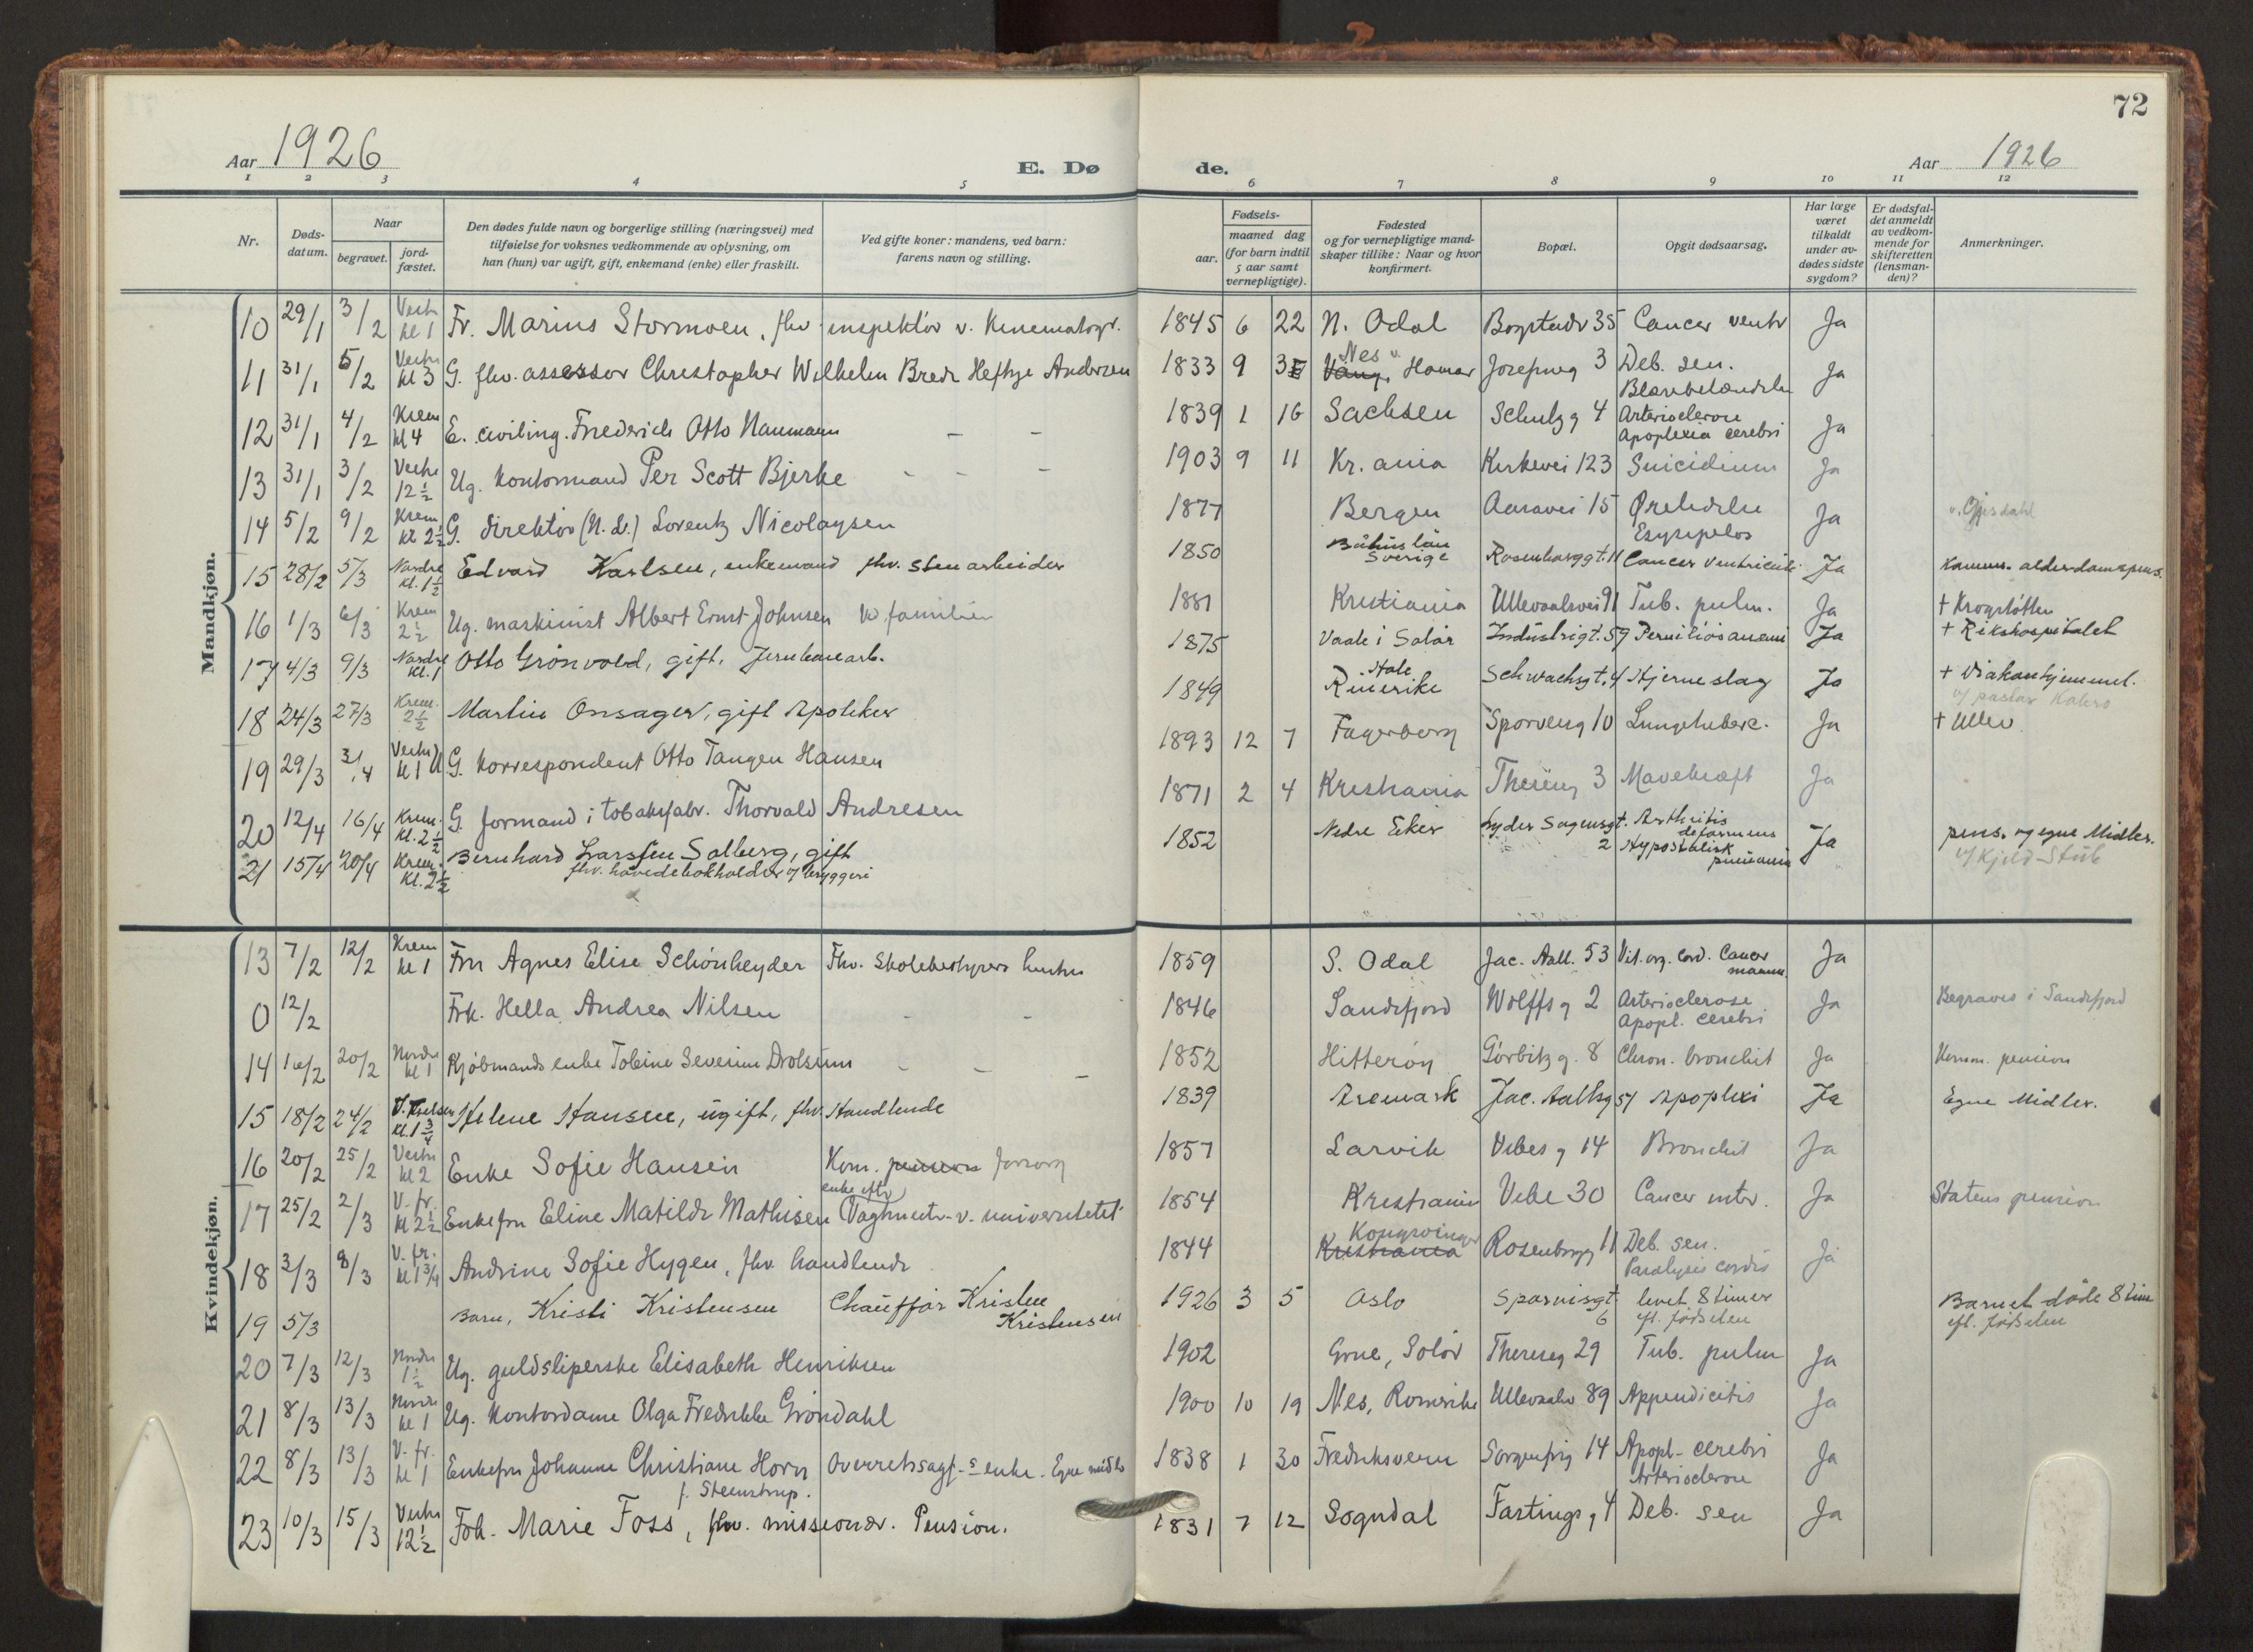 72
Aar 1926 E. Døde. Aar 1926
1 2 3 4 5 6 7 8 9 10 11 12
Nr. Døds-datum. Naar begravet. jord-fæstet. Den dødes fulde navn og borgerlige stilling (næringsvei) med tilføielse for voksnes vedkommende av oplysning, om han (hun) var ugift, gift, enkemand (enke) eller fraskilt. Ved gifte koner: mandens, ved barn: farens navn og stilling. Fødsels- aar. maaned dag (for barn indtil 5 aar samt vernepligtige). Fødested og for vernepligtige mand-skaper tillike: Naar og hvor konfirmert. Bopæl. Opgit dødsaarsag. Har læge været tilkaldt under av-dødes sidste sygdom? Er dødsfal-det anmeldt av vedkom-mende for skifteretten (lensman-den)? Anmerkninger.
Mandkjøn.
10 29/1 3/2 Vestr kl 1 Fr. Marius Stormoen, fhv. inspektör v. Kinematogr. 1845 6 22 N. Odal Bogstadv 35 Cancer ventr Ja
11 31/1 5/2 Vestr kl 3 G. fhv. assessor Christopher Wilhelm Brede Heftye Andersen 1833 9 3 Nes v. Vang, Hamar Josefineg 3 Deb. sen. Blærebetændelse Ja
12 31/1 4/2 Krem kl 4 E. civiling. Friederich Otto Naumann - - 1839 1 16 Sachsen Schultzg 4 Arteriosclerose Apoplexia cerebri Ja
13 31/1 3/2 Vestre 12½ Ug. kontormand Per Scott Bjerke - - - 1903 9 11 Kr.ania Kirkevei 123 Suicidium Ja
14 5/2 9/2 Krem kl 2½ G. direktör (N. L.) Lorentz Nicolaysen 1877 Bergen Aasavei 15 Ørelidelse Erysipelas Ja v. Gjesdahl
15 28/2 5/3 Nordre kl. 1½ Edvard Karlsen, enkemand fhv. stenarbeider 1850 Båhus län Sverige Rosenborggt. 11 Cancer ventriculi Ja Komm. alderdomspens.
16 1/3 6/3 Krem 2½ Ug. maskinist Albert Ernst Johnsen v/ familien 1881 Kristiania Ullevaalsvei 91 Tub. pulm. Ja + Krogstötten
17 4/3 9/3 Nordre kl. 1 Otto Grönvold, gift, Jernbanearb. 1875 Vaale i Solör Industrigt. 59 Perniciös anemi Ja + Rikshospitalet
18 24/3 27/3 Krem. 2½ Martin Onsager, gift Apoteker 1849 Hole Ringerike Schwachsgt. 4 Hjerneslag Ja + Diakonhjemmet. v/ pastor Kolsrø
19 29/3 3/4 Vestre U kl 1 G. korrespondent Otto Tangen Hansen 1893 12 7 Fagerborg Sporveisg 10 Lungetuberc. Ja + Ullev
20 12/4 16/4 Krem. kl. 2½ G. formand i tobaksfabr. Thorvald Andresen 1871 2 4 Kristiania Thereseg 3 Mavekræft Ja
21 15/4 20/4 Krem. kl. 2½ Bernhard Larssen Solberg, gift fhv. hovedbokholder v/ bryggeri 1852 Nedre Eiker Lyder Sagensgt. 2 Arthritis deformens Hypostatisk pneumoni Ja pens. og egne Midler. v/ Kjeld Stub
Kvindekjøn.
13 7/2 12/2 Krem kl 1 Fru Agnes Elise Schönheyder Fhv. Skolebestyrers hustru 1859 S. Odal Jac. Aall. 53 Vit. org. cord. Cancer mamm. Ja
0 12/2 Frk. Hella Andrea Nilsen - - 1846 Sandefjord Wolffs g 2 Arteriosclerose Apopl. cerebri Ja Begraves i Sandefjord
14 16/2 20/2 Nordre kl 1 Kjöbmands enke Tobine Severine Drolsum - - - 1852 Hitteröy Görbitz g. 8 Chron. bronchit Ja Komm. pension
15 18/2 24/2 V. Frelsers kl. 1¾ Helene Hansen, ugift, fhv. Handlende 1839 Aremark Jac. Aallsg 57 Apoplexi Ja Egne Midler.
16 20/2 25/2 Vestre kl 2 Enke Sofie Hansen Kom. pension forsorg 1857 Larvik Vibes g 14 Bronchit Ja
17 25/2 2/3 V. fr. kl 2½ Enkefru Eline Matilde Mathisen enke eftr Vagtmestr. v. universitetet 1854 Kristiania Vibe 30 Cancer ventr. Ja Statens pension
18 3/3 8/3 V. fr. kl 1 3/4 Andrine Sofie Hygen, fhv. handlende 1844 Kongsvinger Kristiania Rosenborgg 11 Deb. sen. Paralysis cordis Ja
19 5/3 Barn, Kristi Kristensen Chauffør Kristen Kristensen 1926 3 5 Oslo Sporveisgt 6 levet 8 timer eft. fødselen Barnet døde 8 time eft. fødselen
20 7/3 12/3 Nordre 1½ Ug. guldsliperske Elisabeth Henriksen 1902 Grue, Solör Thereseg 29 Tub. pulm Ja
21 8/3 13/3 Nordre kl 1 Ug. kontordame Olga Fredrikke Gröndahl 1900 10 19 Nes, Romerike Ullevaalsv 89 Appendicitis Ja
22 8/3 13/3 V. fr. kl 1 Enkefru Johanne Christiane Horn f. Steenstrup. Overretssagf-s enke. Egne midler 1838 1 30 Fredriksvern Sorgenfrig 14 Apopl. cerebri Arteriosclerose Ja
23 10/3 15/3 Vestre 12½ Frk. Marie Foss, fhv. missionær. Pension. 1831 7 12 Sogndal Fastings g 4 Deb. sen Ja